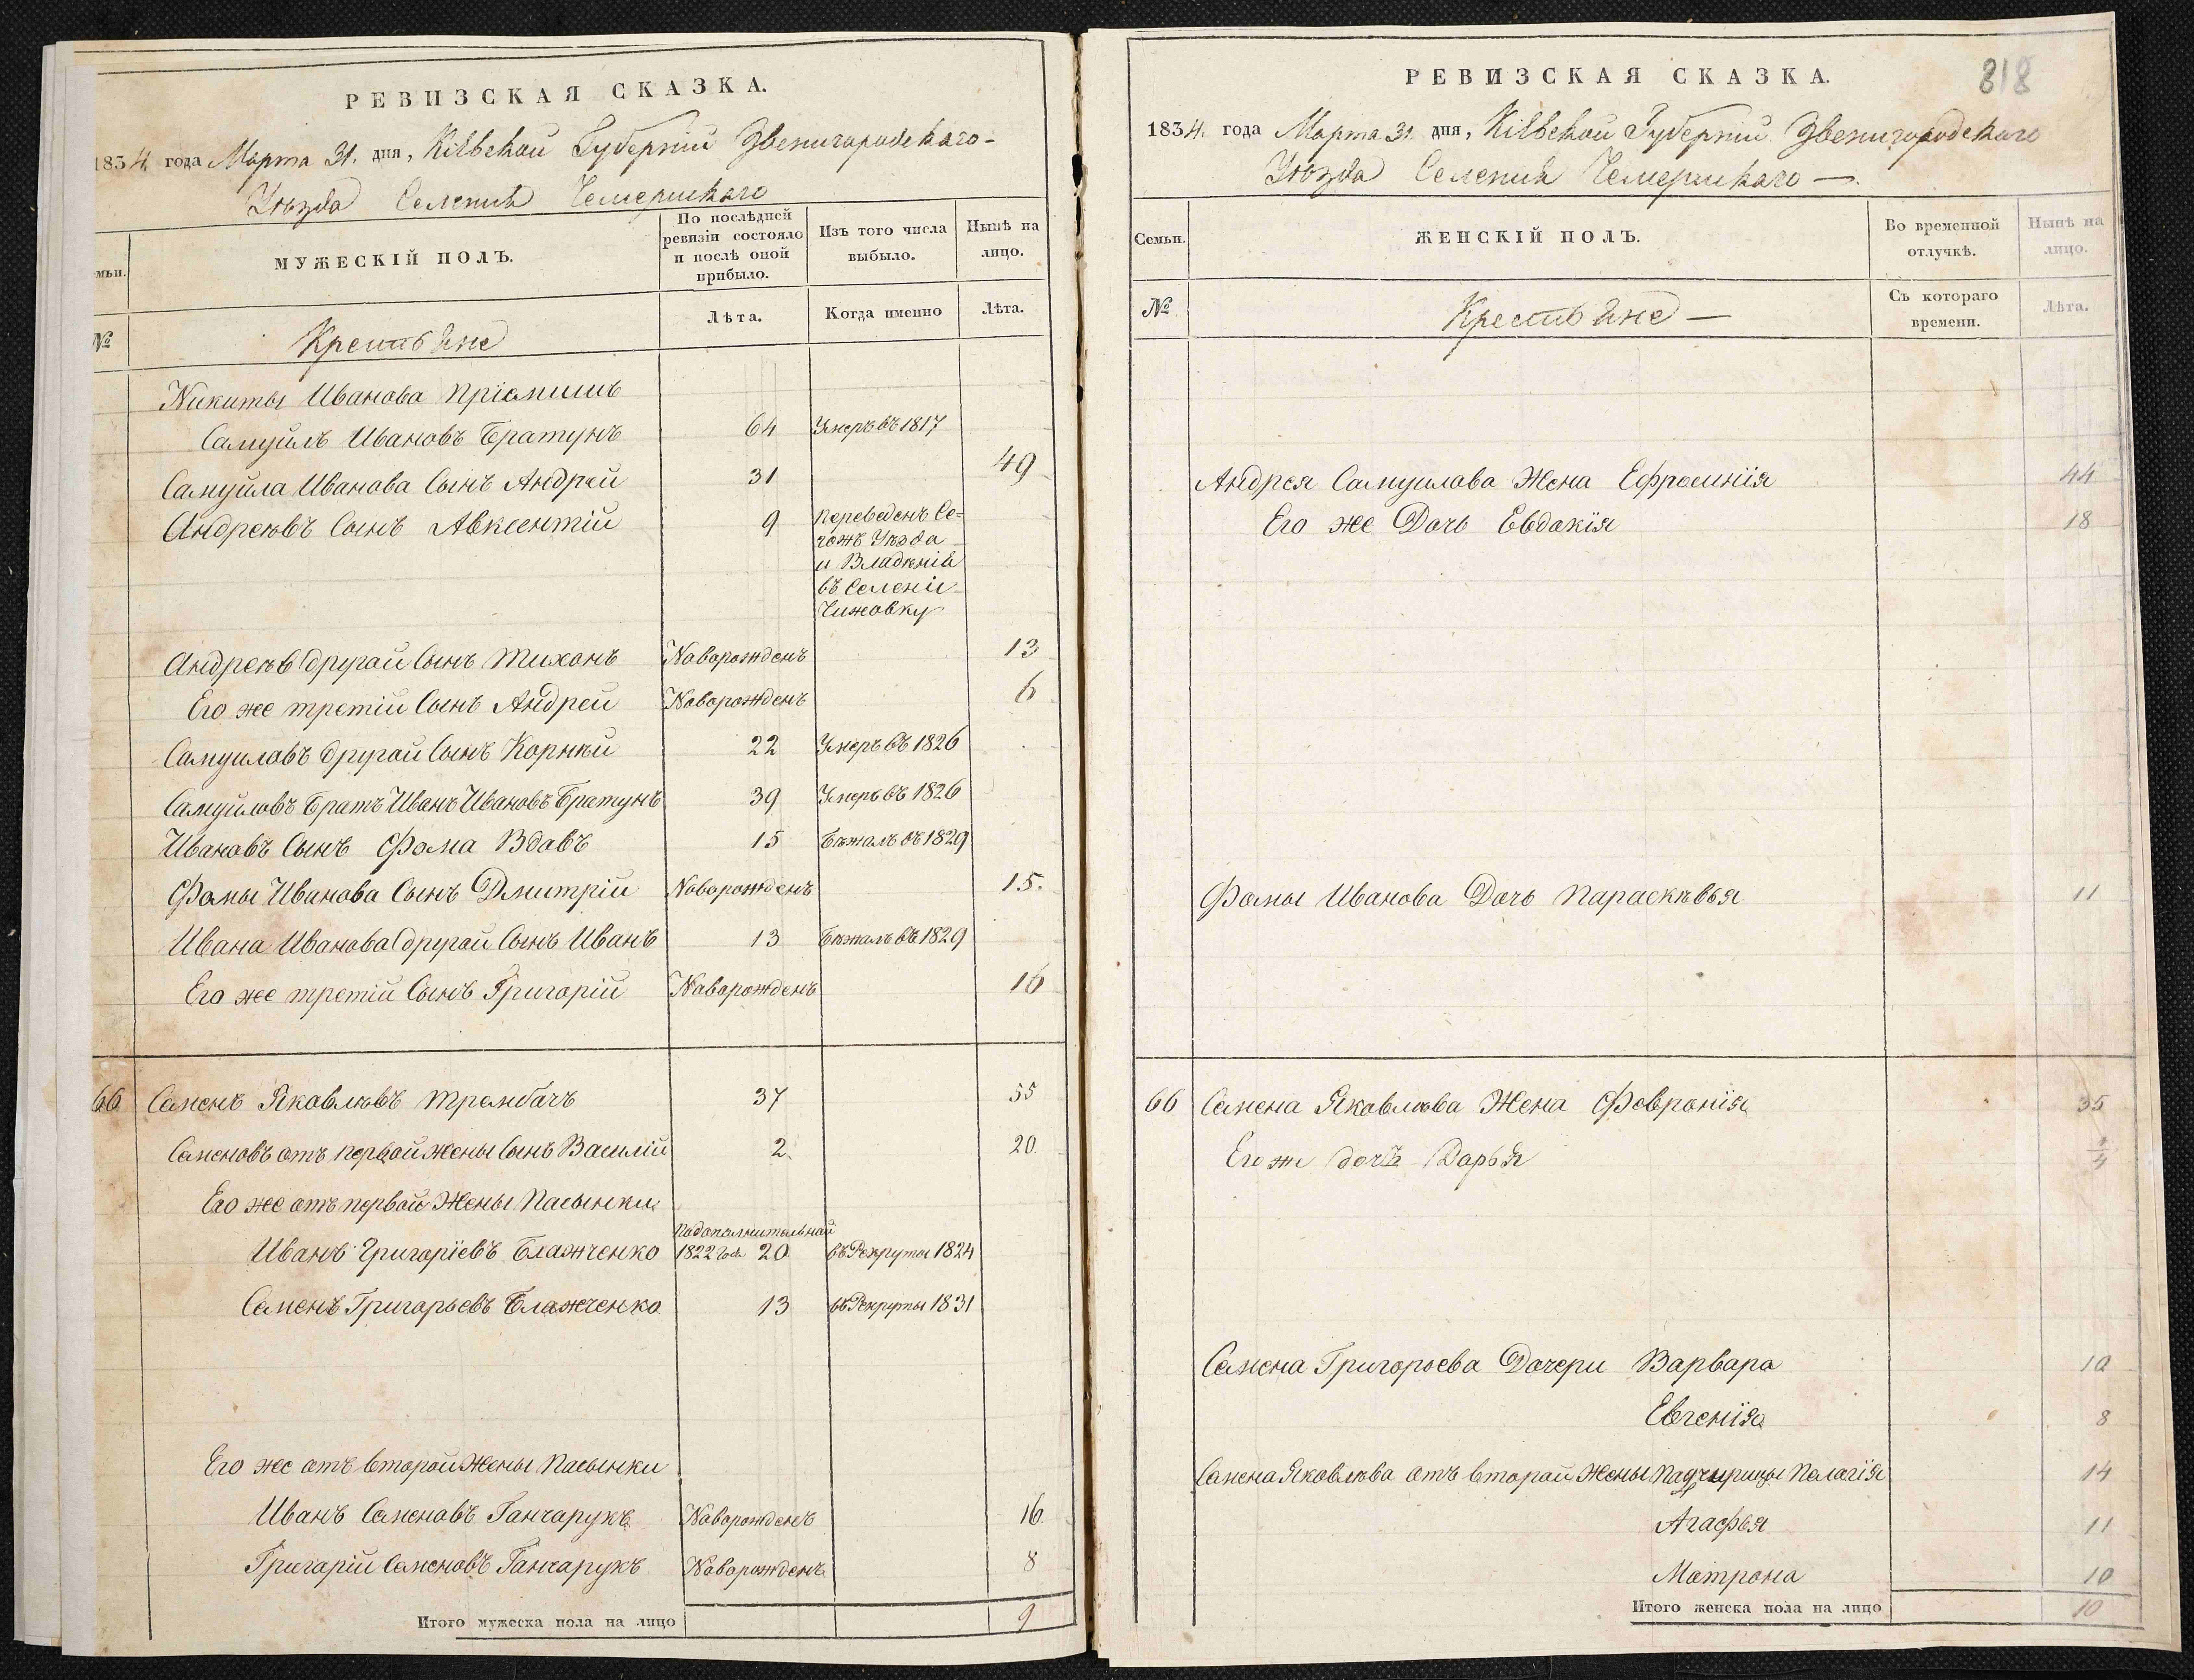 РЕВИЗСКАЯ СКАЗКА.
1834. года Марта 31. дня, Кіевской Губерніи Звенигородскаго-
Уѣзда Селенія Чемерискаго
мьи.
МУЖЕСКІЙ ПОЛЪ.
По послѣдней ревизіи состояло и послѣ оной прибыло.
Изъ того числа выбыло.
Нынѣ на лицо.
№
Крестьяне
Лѣта.
Когда именно
Лѣта.
Никиты Иванова Пріемишъ
Самуйлъ Ивановъ Братунъ 64 Умеръ въ 1817
Самуйла Иванова Сынъ Андрей 31 49
Андреевъ Сынъ Авксентій 9 переведенъ Се=
гожъ Уѣзда
и Владѣнія
въ Селеніе
Чижовку
Андреевъ другой Сынъ Тихонъ Новорожденъ 13
Его же третій Сынъ Андрей Новорожденъ 6
Самуиловъ другой Сынъ Корнѣй 22 Умеръ въ 1826
Самуйловъ Братъ Иванъ Ивановъ Братунъ 39 Умеръ въ 1826
Ивановъ Сынъ Фома Вдовъ 15 Бѣжалъ въ 1829
Фомы Иванова Сынъ Дмитрій Новорожденъ 15.
Ивана Иванова другой Сынъ Иванъ 13 Бѣжалъ въ 1829
Его же третій Сынъ Григорій Новорожденъ 16
66 Семенъ Яковлѣвъ Трембачъ 37 55
Семеновъ отъ первой жены Сынъ Василій 2. 20.
Его же отъ первой Жены Пасынки
Подополнительной
Иванъ Григоріевъ Блажченко 1822 года 20 въ Рекруты 1824
Семенъ Григорьевъ Блажченко 13 въ Рекруты 1831
Его же отъ второй Жены Пасынки
Иванъ Семеновъ Ганчарукъ Новорожденъ 16.
Григорій Семеновъ Ганчарукъ Новорожденъ 8
Итого мужеска пола на лицо 9
818
РЕВИЗСКАЯ СКАЗКА.
1834. года Марта 31. дня, Кіевской Губерніи Звенигородскаго
Уѣзда Селенія Чемерискаго —.
Семьи.
ЖЕНСКІЙ ПОЛЪ.
Во временной отлучкѣ.
Нынѣ на лицо.
№
Крестьяне —
Съ котораго времени.
Лѣта.
Андрея Самуилова Жена Ефросинія 44
Его же Дочь Евдокія 18
Фомы Иванова Дочь Параскѣвья 11
66 Семена Яковлѣва Жена Февронія 35
Его ж дочь Дарья 1/4
Семена Григорьева Дочери Варвара 10
Евгенія 8
Семена Яковлѣва отъ второй Жены Падчирицы Пелагія 14
Агафья 11
Матрона 10
Итого женска пола на лицо 10